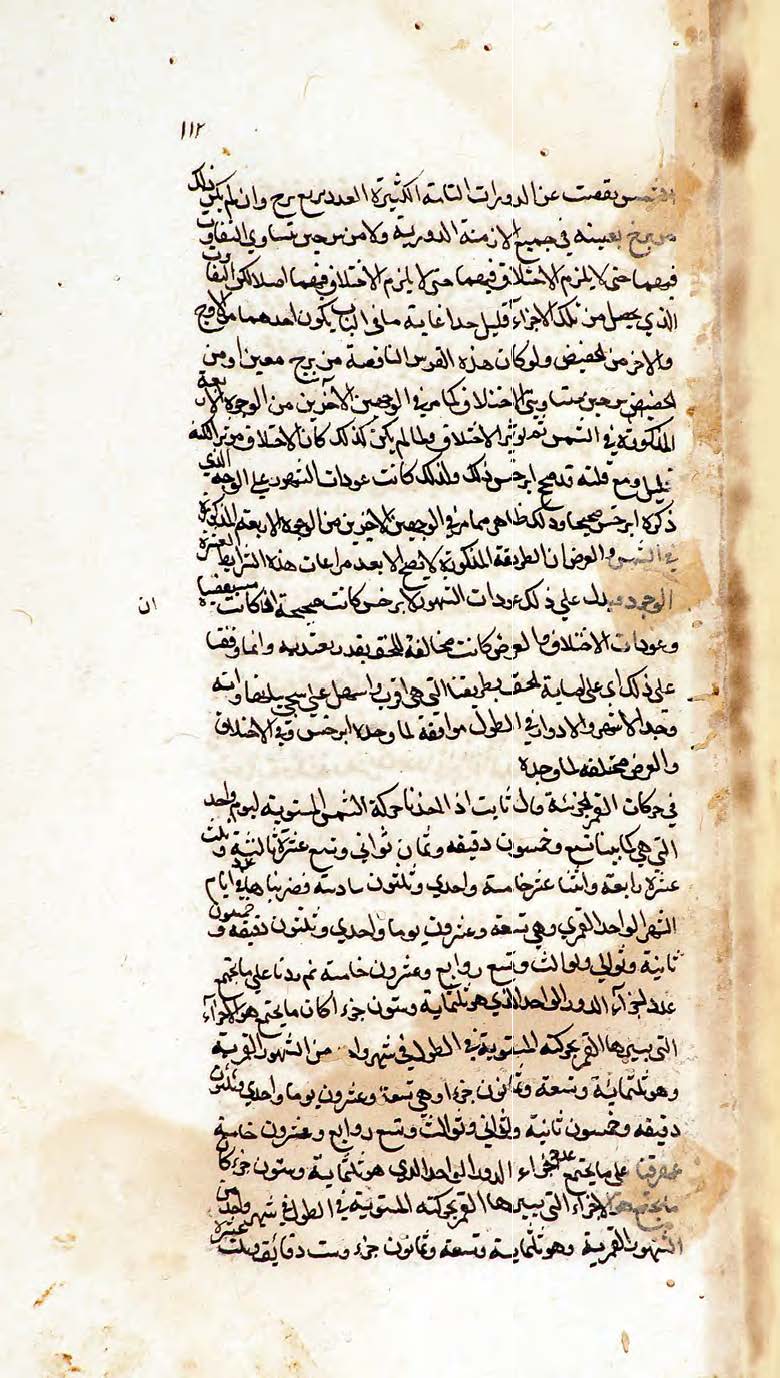 ١١٢
نقصت عن الدورات التامة الكثيرة العدد بربع برج وان لم يكن ذلك
من برج بعينه في جميع الازمنة الدورية ولا من برجين تساوي التفاوت
فيهما حتى لا يلزم الاختلاف فيهما حتى لا يلزم الاختلاف فيهما اصلا لكن التفاوت
الذي يحصل من تلك الاجزاء قليل جدا غاية ما في الباب يكون احدهما من الاوج
والاخر من الحضيض ولو كان هذه القوس الناقصة من برج معين او من
الحضيض برجين الاختلاف كما مر في الوجهين الآخرين من الوجوه الاربعة
المذكورة في الشمس الاختلاف ولما لم يكن كذلك كان الاختلاف
قليل ومع قلته قد صحح ابرخس ذلك ولذلك كانت عودات الشهور على الوجه الذي
ذكره ابرخس صحيحا وذلك ظاهر مما مر في الوجهين الاخيرين من الوجوه الاربعة المذكورة
في الشمس والغرض ان الطريقة المذكورة لا تصح الا بعد مراعات هذه الشرايط العشرة
الوجود ويدل على ذلك عودات الشهور لابرخس كانت صحيحة اذ كانت
ان
وعودات الاختلاف والعرض كانت مخالفة للحق بقدر يعتد به وانما وقفنا
على ذلك اى على الحق بطريقنا التى هى اقرب واسهل على
وجد الاشهر والادوار في الطول موافقة لما وجده ابرخس وفي الاختلاف
والعرض مختلفة لما وجده
في حركات القمر الجزئية قال ثابت اذ اخذنا حركة الشمس المستوية ليوم واحد
التى هى كما بينا تسع وخمسون دقيقه وثمان ثوانى وسبع عشرة ثالثة وثلث
عشرة رابعة واثنا عشر خامسة واحدي وثلثون سادسة فضربناها في عدد ايام
الشهر الواحد القمري وهي تسعة وعشرون يوما واحدي وثلثون دقيقة وخمسون
ثانية وثوالث وتسع روابع وعشرون خامسة ثم زدنا على ما يجتمع
عدد اجزاء الدور الواحد الذي هو ثلثماية وستون جزءا كان ما يجتمع هو الاجزاء
التى يسيرها القمر بحركته المستوية في الطول في شهر واحد من الشهور القمرية
وهو ثلثماية وتسعة وثمانون جزءا وهي تسعة وعشرون يوما واحدي وثلثون
دقيقه وخمسون ثانية وثوانى وثوالث وتسع روابع وعشرون خامسة
على ما يجتمع عدد اجزاء الدور الواحد الذي هو ثلثماية وستون جزء كان
ما يجتمع هو الاجزاء التى يسيرها القمر بحركته المستوية في الطول في شهر واحد من
الشهور القمرية وهو ثلثماية وتسعة وثمانون جزء وست دقايق وثلث عشرة